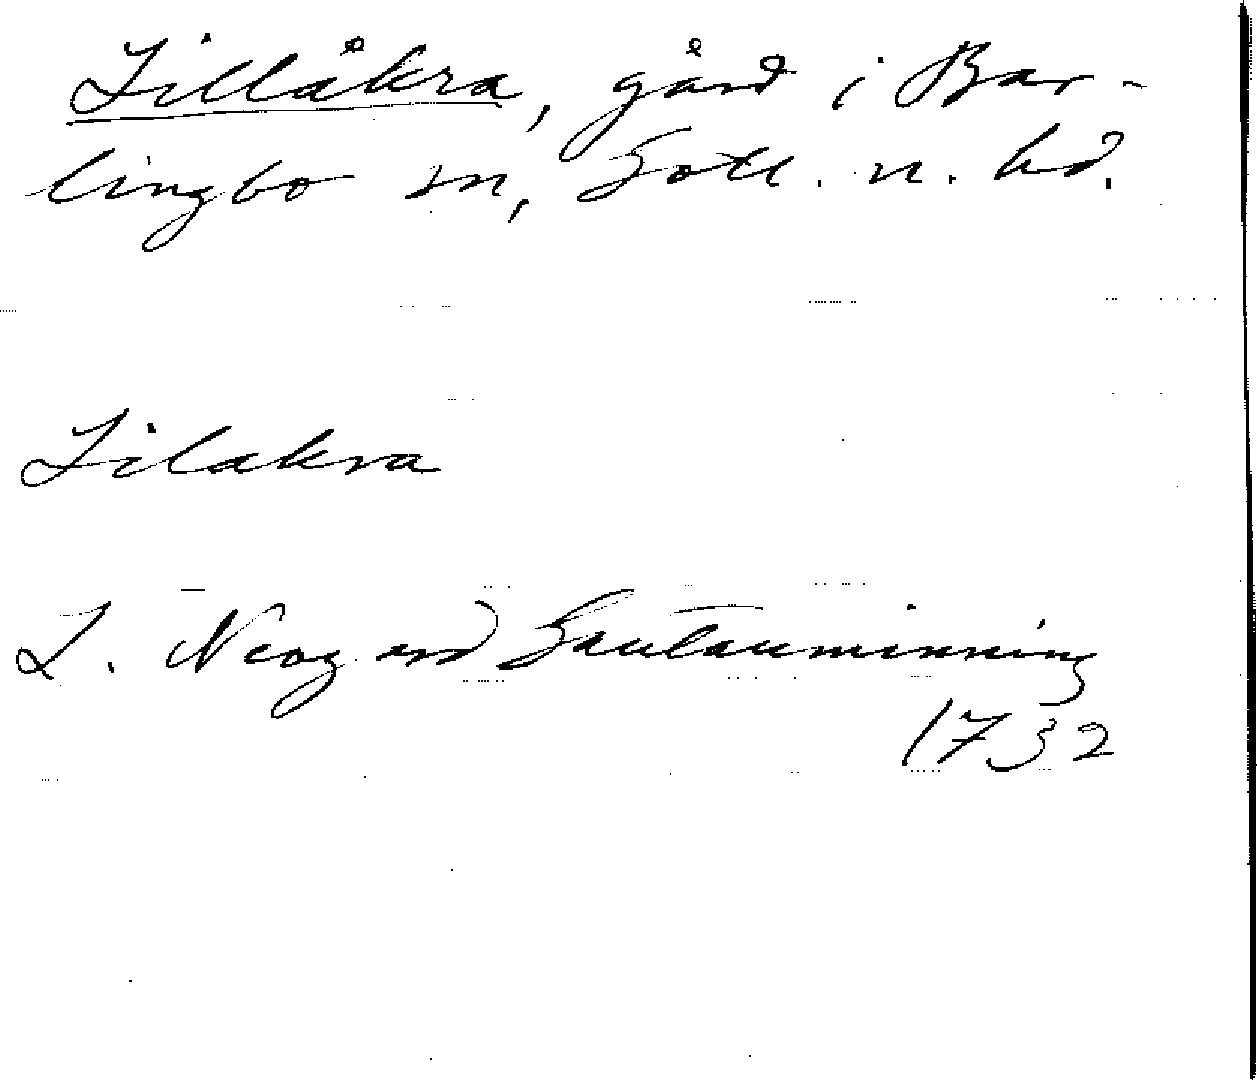 Lillåkra, gård i Bar-
lingbo sn, Gotl. n. hd.
Lilakra
L. Neogard Gautauminning
1732